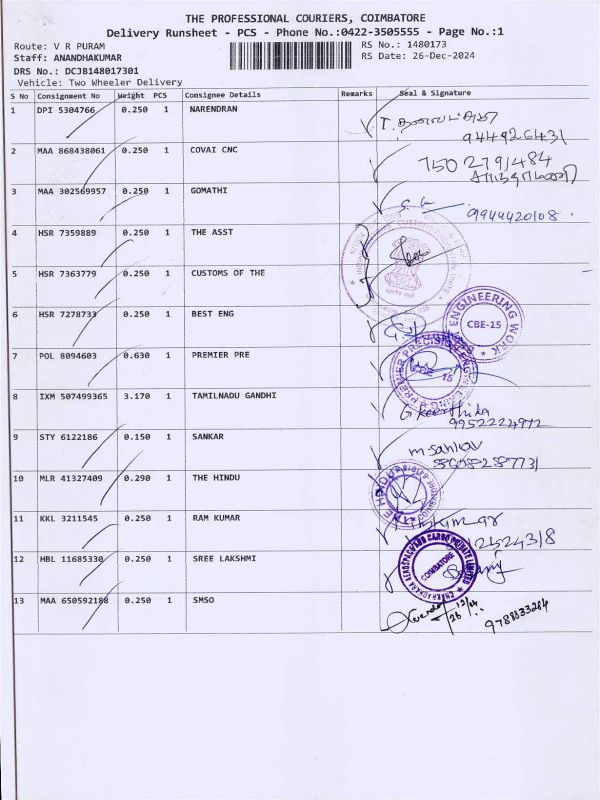 THE PROFESSIONAL COURIERS, COIMBATORE
Delivery Runsheet - PCS - Phone No.:0422-3505555 - Page No.:1
Route: V R PURAM
RS No.: 1480173
Staff: ANANDHAKUMAR
RS Date: 26-Dec-2024
DRS No.: DCJB148017301
Vehicle: Two Wheeler Delivery
S No Consignment No Weight PCS Consignee Details Remarks Seal & Signature
1 DPI 5304766 0.250 1 NARENDRAN
9444926431
2 MAA 868438061 0.250 1 COVAI CNC
750 2791484
3 MAA 302569957 0.250 1 GOMATHI
9944420108
4 HSR 7359889 0.250 1 THE ASST
5 HSR 7363779 0.250 1 CUSTOMS OF THE
6 HSR 7278733 0.250 1 BEST ENG
ENGINEERING WORK
CBE-15
7 POL 8094603 0.630 1 PREMIER PRE
PREMIER PRECISION
8 IXM 507499365 3.170 1 TAMILNADU GANDHI
G Keerthika
9952224972
9 STY 6122186 0.150 1 SANKAR
m Sankar
10 MLR 41327409 0.290 1 THE HINDU
THE HINDU
11 KKL 3211545 0.250 1 RAM KUMAR
12 HBL 11685330 0.250 1 SREE LAKSHMI
COIMBATORE
13 MAA 650592188 0.250 1 SMSO
26/12/24
9788833284